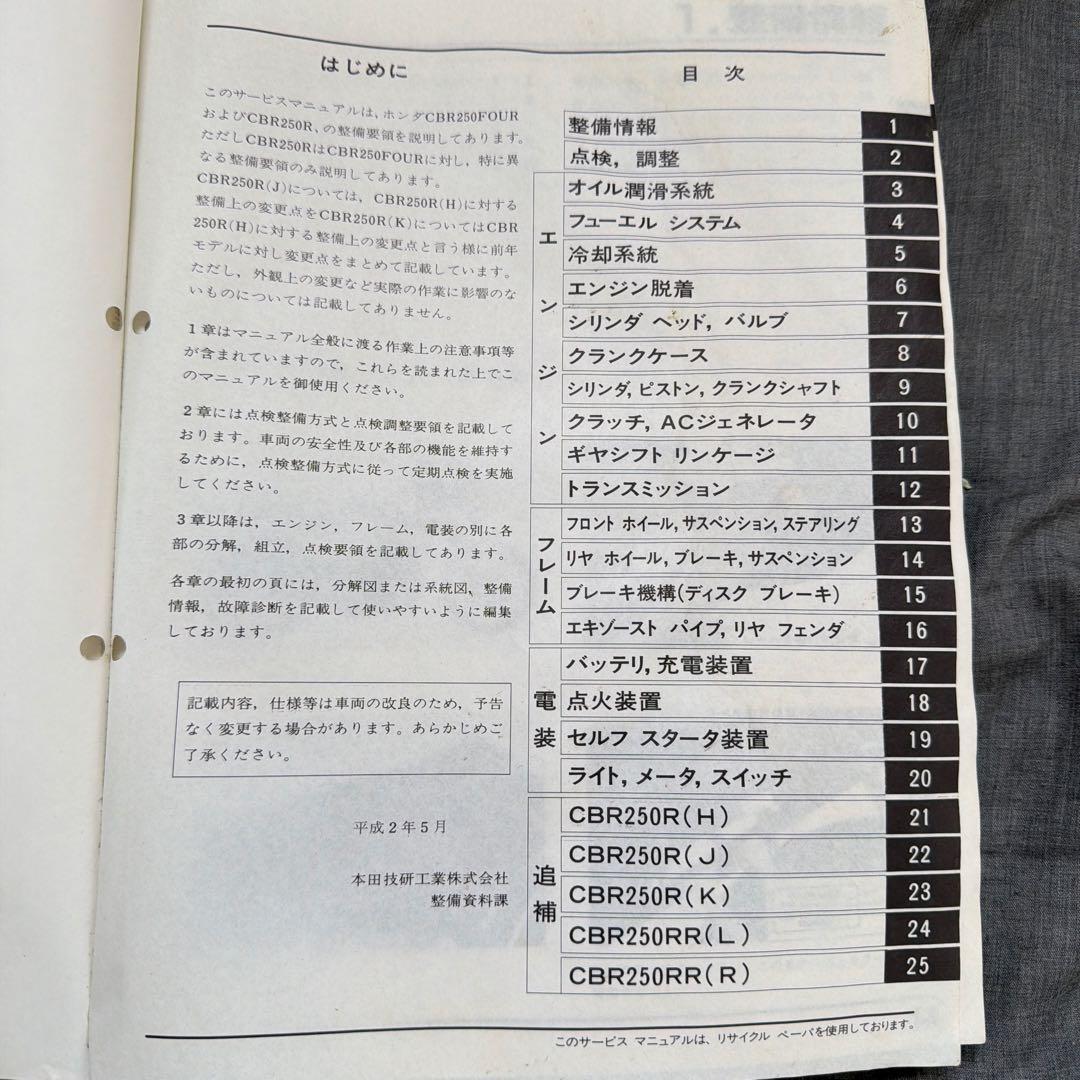 はじめに
このサービスマニュアルは、ホンダCBR250FOUR
およびCBR250R、の整備要領を説明してあります。
ただしCBR250RはCBR250FOURに対し，特に異
なる整備要領のみ説明してあります。
CBR250R(J)については，CBR250R(H)に対する
整備上の変更点をCBR250R(K)についてはCBR
250R(H)に対する整備上の変更点と言う様に前年
モデルに対し変更点をまとめて記載しています。
ただし，外観上の変更など実際の作業に影響のな
いものについては記載してありません。
1章はマニュアル全般に渡る作業上の注意事項等
が含まれていますので，これらを読まれた上でこ
のマニュアルを御使用ください。
2章には点検整備方式と点検調整要領を記載して
おります。車両の安全性及び各部の機能を維持す
るために，点検整備方式に従って定期点検を実施
してください。
3章以降は，エンジン，フレーム，電装の別に各
部の分解，組立，点検要領を記載してあります。
各章の最初の頁には，分解図または系統図、整備
情報，故障診断を記載して使いやすいように編集
しております。
記載内容，仕様等は車両の改良のため，予告
なく変更する場合があります。あらかじめご
了承ください。
平成2年5月
本田技研工業株式会社
整備資料課
目 次
整備情報 1
点検，調整 2
エンジン
オイル潤滑系統 3
フューエル システム 4
冷却系統 5
エンジン脱着 6
シリンダ ヘッド，バルブ 7
クランクケース 8
シリンダ，ピストン，クランクシャフト 9
クラッチ，ACジェネレータ 10
ギヤシフト リンケージ 11
トランスミッション 12
フレーム
フロント ホイール，サスペンション，ステアリング 13
リヤ ホイール，ブレーキ，サスペンション 14
ブレーキ機構(ディスク ブレーキ) 15
エキゾースト パイプ，リヤ フェンダ 16
電装
バッテリ，充電装置 17
点火装置 18
セルフ スタータ装置 19
ライト，メータ，スイッチ 20
追補
CBR250R(H) 21
CBR250R(J) 22
CBR250R(K) 23
CBR250RR(L) 24
CBR250RR(R) 25
このサービス マニュアルは、リサイクル ペーパを使用しております。